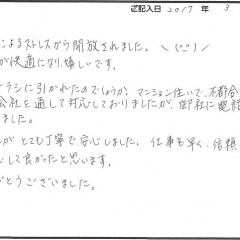 ご記入日 2017 年 3
によるストレスから開放されました。 \(^^)/
が快適になり、嬉しいです。
ラシに引かれたのでしょうか。マンション住いで、不都合
会社を通して対応しておりましたが、御社に電話
ました。
がとても丁寧で安心しました。仕事も早く、信頼
して良かったと思います。
がとうございました。